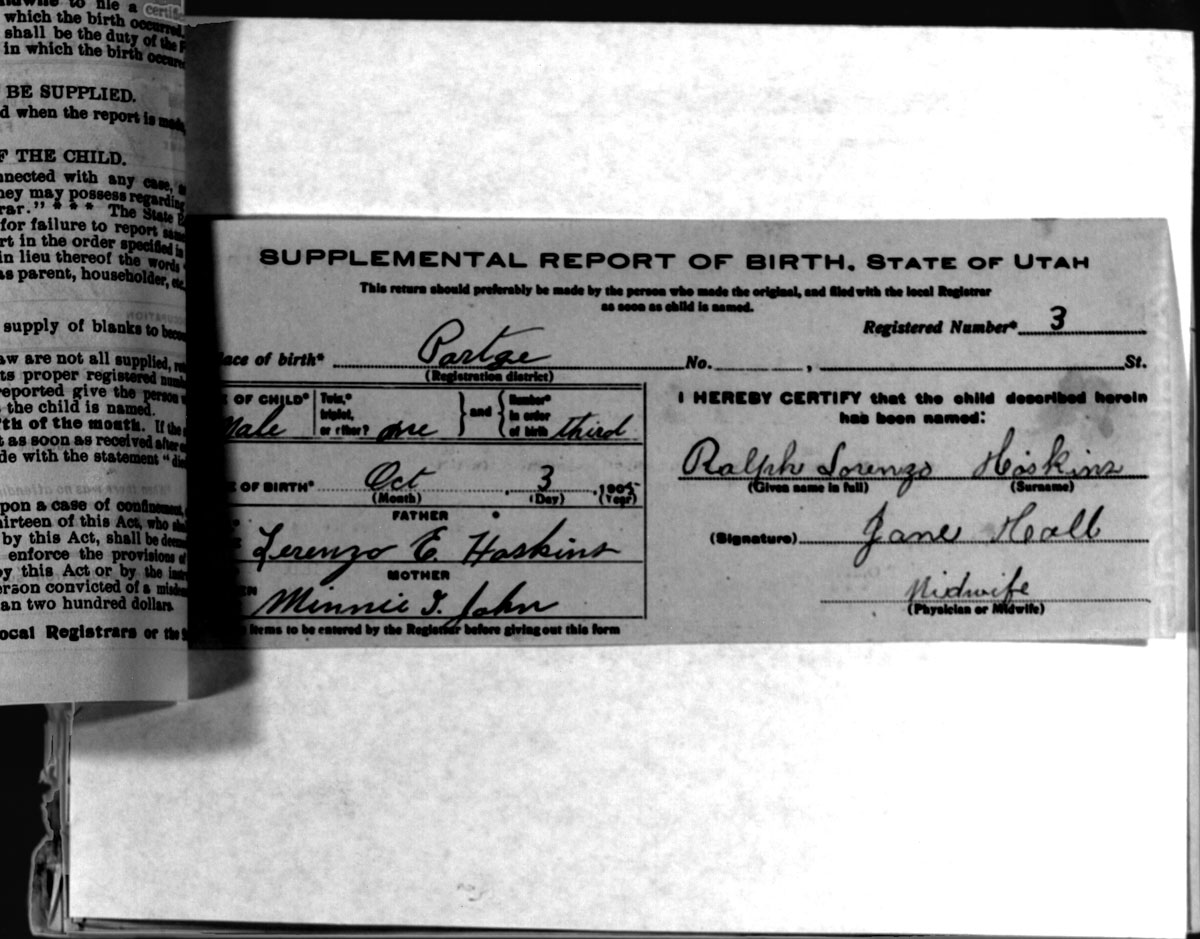 to file a certific
which the birth occurred,
shall be the duty of the
in which the birth occure
BE SUPPLIED.
d when the report is made,
F THE CHILD.
nnected with any case,
hey may possess regarding
rar." * * * The State
for failure to report same
rt in the order specified in
in lieu thereof the words
as parent, householder, etc.
supply of blanks to
aw are not all supplied,
ts proper registered
reported give the person
the child is named.
th of the month. If the
t as soon as received after
de with the statement "
pon a case of confinement,
irteen of this Act, who
by this Act, shall be
enforce the provisions of
by this Act or by the
erson convicted of a
an two hundred dollars
ocal Registrars or the
SUPPLEMENTAL REPORT OF BIRTH. STATE OF UTAH
This return should preferably be made by the person who made the original, and filed with the local Registrar
as soon as child is named.
Registered Number* 3
lace of birth* Portge No. , St.
(Registration district)
OF CHILD* Male
Twin,* triplet, or other? one
and
Number* in order of birth third
OF BIRTH* Oct , 3 , 1905
(Month) (Day) (Year)
FATHER
Lerenzo E. Hoskins
MOTHER
Minnie I. John
items to be entered by the Registrar before giving out this form
I HEREBY CERTIFY that the child described herein
has been named:
Ralph Lorenzo Hoskins
(Given name in full) (Surname)
(Signature) Jane Hall
Midwife
(Physician or Midwife)